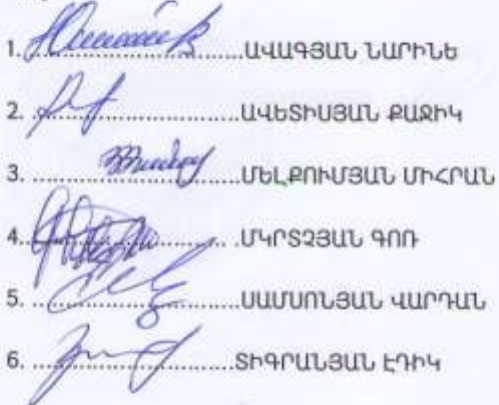 1. ........................ԱՎԱԳՅԱՆ ՆԱՐԻՆԵ
2. ........................ԱՎԵՏԻՍՅԱՆ ՔԱՋԻԿ
3. ........................ՄԵԼՔՈՒՄՅԱՆ ՄԻՀՐԱՆ
4. ........................ՄԿՐՏՉՅԱՆ ԳՈՌ
5. ........................ՍԱՄՍՈՆՅԱՆ ՎԱՐԴԱՆ
6. ........................ՏԻԳՐԱՆՅԱՆ ԷԴԻԿ